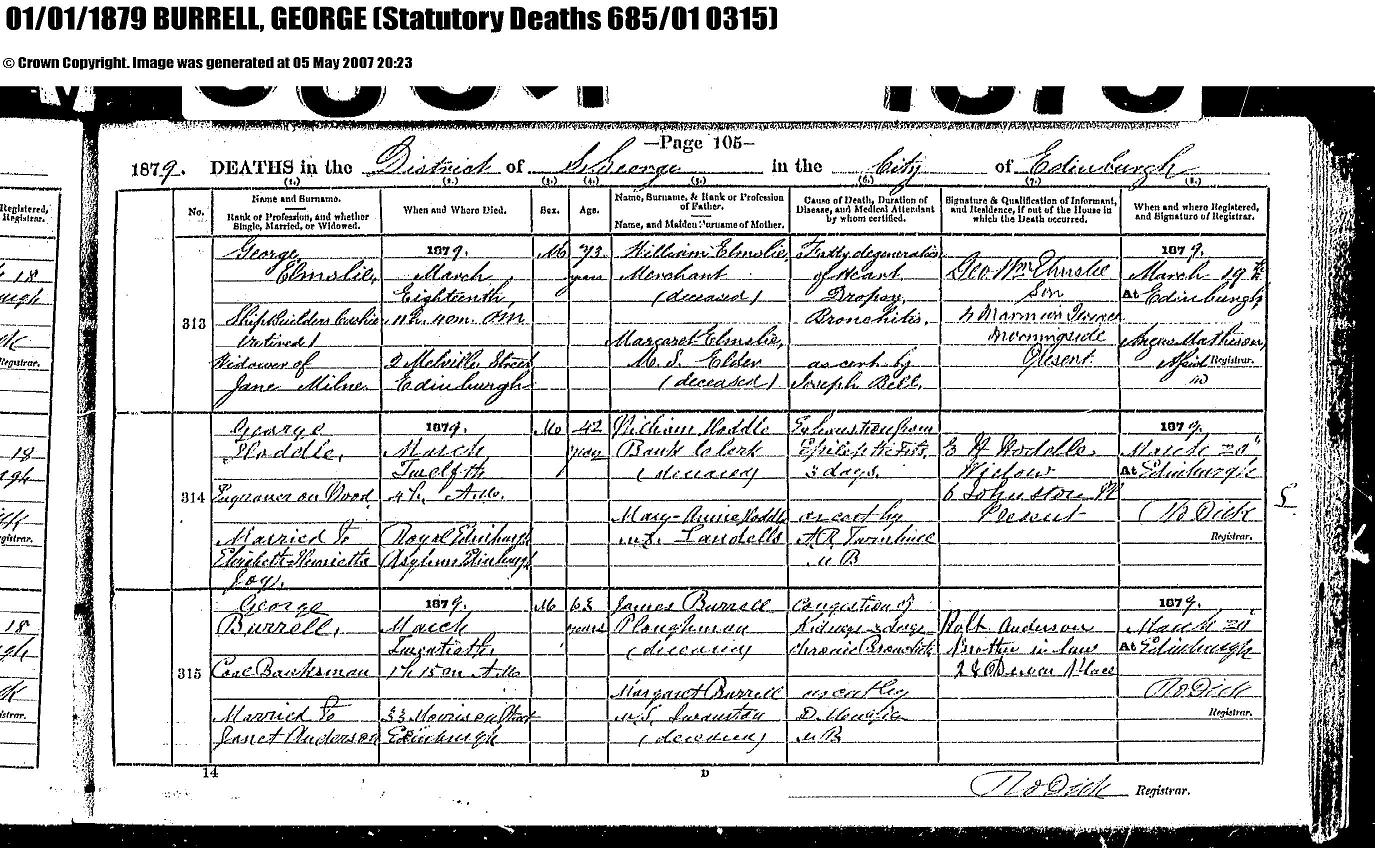 01/01/1879 BURRELL, GEORGE (Statutory Deaths 685/01 0315)
© Crown Copyright. Image was generated at 05 May 2007 20:23
—Page 105—
1879. DEATHS in the District of St George in the City of Edinburgh
(1.) (2.) (3.) (4.) (5.) (6.) (7.) (8.)
No.
Name and Surname.
Rank or Profession, and whether
Single, Married, or Widowed.
When and Where Died.
Sex.
Age.
Name, Surname, & Rank or Profession
of Father.
Name, and Maiden Surname of Mother.
Cause of Death, Duration of
Disease, and Medical Attendant
by whom certified.
Signature & Qualification of Informant,
and Residence, if out of the House in
which the Death occurred.
When and where Registered,
and Signature of Registrar.
313
George
Elmslie,
Ship Builders Cashier
(retired)
Widower of
Jane Milne
1879.
March
Eighteenth,
11h. 40m. PM
2 Melville Street
Edinburgh
M
73
years
William Elmslie,
Merchant
(deceased)
Margaret Elmslie,
M.S. Elder
(deceased)
Fatty degeneration
of Heart
Dropsy,
Bronchitis.
as cert by
Joseph Bell,
Geo. Wm Elmslie
Son
Morningside
Present
1879.
March 19th
At Edinburgh
Angus Matheson,
Registrar.
314
George
Hoddle,
Engraver on Wood
Married to
Elizabeth Henrietta
Joy.
1879.
March
Twelfth
4h. A.M.
Royal Edinburgh
Asylum Edinburgh
M
42
years
William Hoddle
Bank Clerk
(deceased)
Mary-Annie Hoddle
m.s. Landells
Exhaustion from
Epileptic Fits,
3 days.
as cert by
A.R. Turnbull
M B
E H Hoddle
Widow
6 Johnston
Present
1879.
March 20"
At Edinburgh
Ro Dick
Registrar.
315
George
Burrell,
Coal Banksman
Married to
Janet Anderson
1879.
March
Twentieth
1h 15m A.M.
33 Morrison Street
Edinburgh
M
63
years
James Burrell
Ploughman
(deceased)
Margaret Burrell
m.s.
(deceased)
Congestion of
Kidneys
Chronic Bronchitis
as cert by
M B
Robt Anderson
Brother in law
Place
1879.
March 20"
At Edinburgh
Ro Dick
Registrar.
14
D
Ro Dick Registrar.